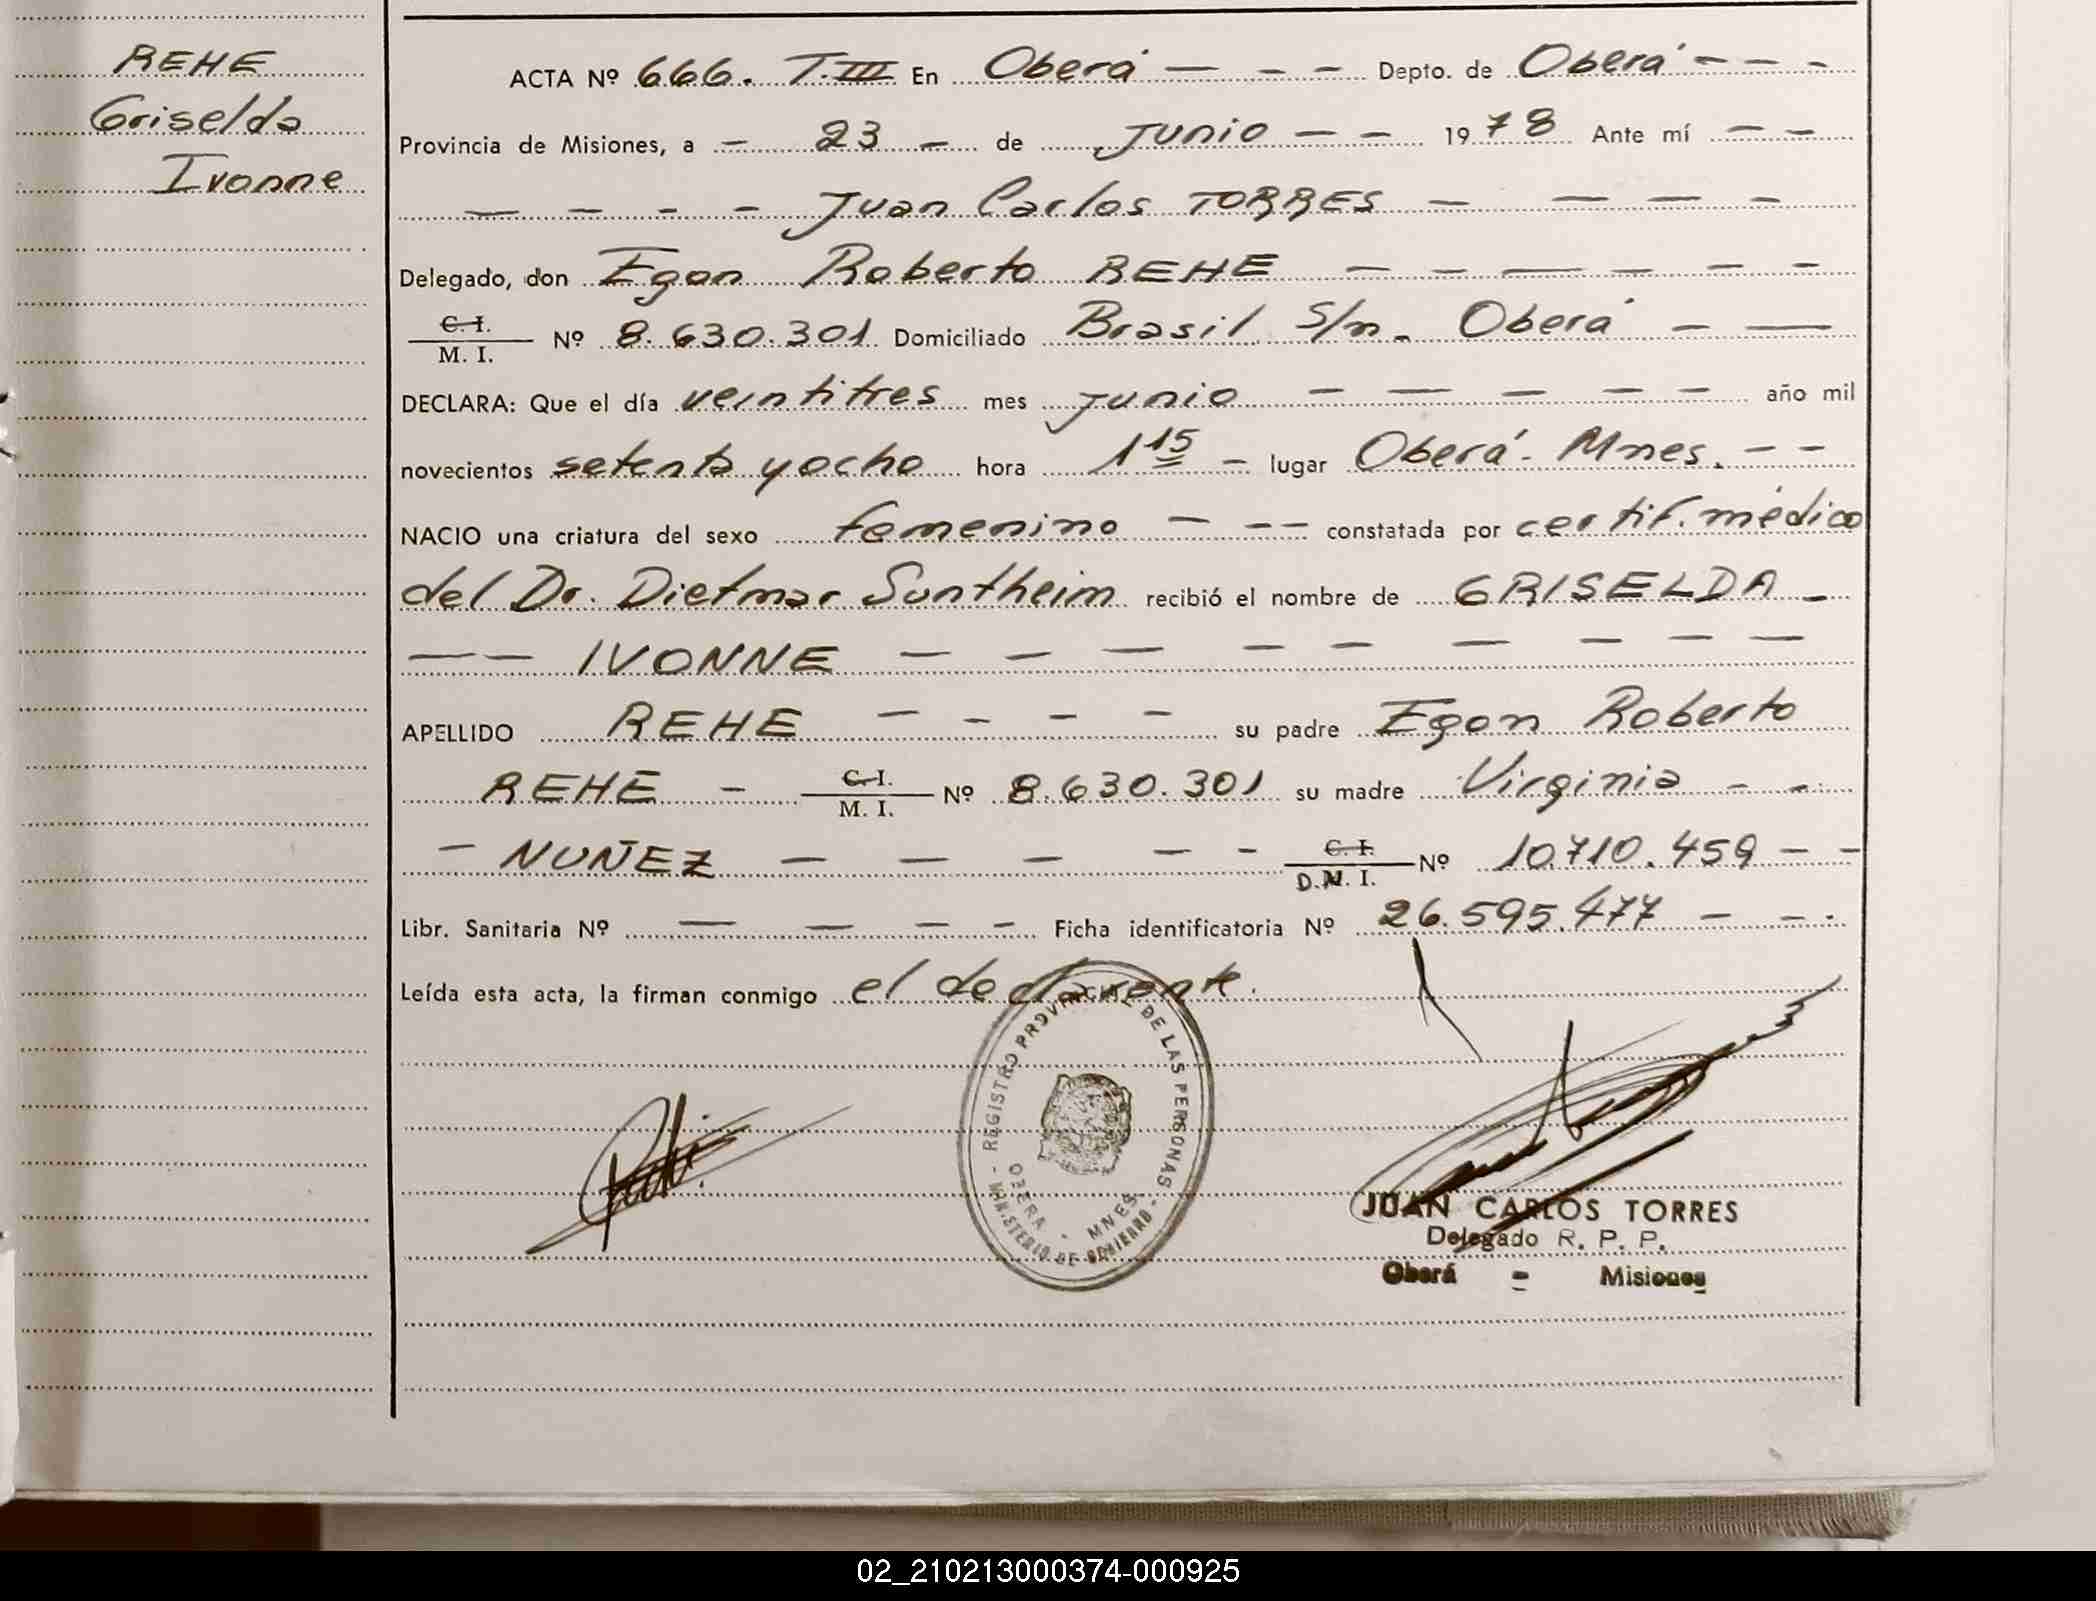 REHE
Griselda
Ivonne
ACTA Nº 666. T.III En Oberá — - - - Depto. de Oberá - - - -
Provincia de Misiones, a — 23 — de Junio — — - 1978 Ante mí — —
— — - - Juan Carlos TORRES — — — -
Delegado, don Egon Roberto REHE — - — — - -
C. I.
M. I. Nº 8.630.301 Domiciliado Brasil S/n. Oberá — —
DECLARA: Que el día veintitres mes junio — — — — — año mil
novecientos setenta y ocho hora 1 15 — lugar Oberá. Mnes. — —
NACIO una criatura del sexo femenino — — — constatada por certif. médico
del Dr. Dietmar Sontheim recibió el nombre de GRISELDA —
— — IVONNE — — — — — — — — —
APELLIDO REHE — - - - su padre Egon Roberto
REHE — C. I.
M. I. Nº 8.630.301 su madre Virginia — -
— NUÑEZ — — — — - C. I.
D.N. I. Nº 10.710.459 — —
Libr. Sanitaria Nº — — — - Ficha identificatoria Nº 26.595.477 — - .
Leída esta acta, la firman conmigo el declarante.
- REGISTRO PROVINCIAL DE LAS PERSONAS -
OBERA - MNES.
MINISTERIO DE GOBIERNO
JUAN CARLOS TORRES
Delegado R. P. P.
Oberá - Misiones
02_210213000374-000925